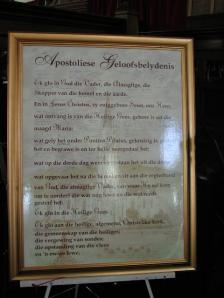 Apostoliese Geloofsbelydenis
Ek glo in God die Vader, die Almagtige, die
Skepper van die hemel en die aarde.
En in Jesus Christus, sy eniggebore Seun, ons Here;
wat ontvang is van die Heilige Gees, gebore is uit die
maagd Maria;
wat gely het onder Pontius Pilatus, gekruisig is,
het en begrawe is en ter helle neergedaal het;
wat op die derde dag weer opgestaan het uit die dode;
wat opgevaar het na die hemel en sit aan die regterhand
van God, die almagtige Vader, van waar Hy sal kom
om te oordeel die wat nog lewe en die wat reeds
gesterf het.
Ek glo in die Heilige Gees.
Ek glo aan die heilige, algemene, Christelike kerk,
die gemeenskap van die heiliges;
die vergewing van sondes;
die opstanding van die vlees
en 'n ewige lewe.